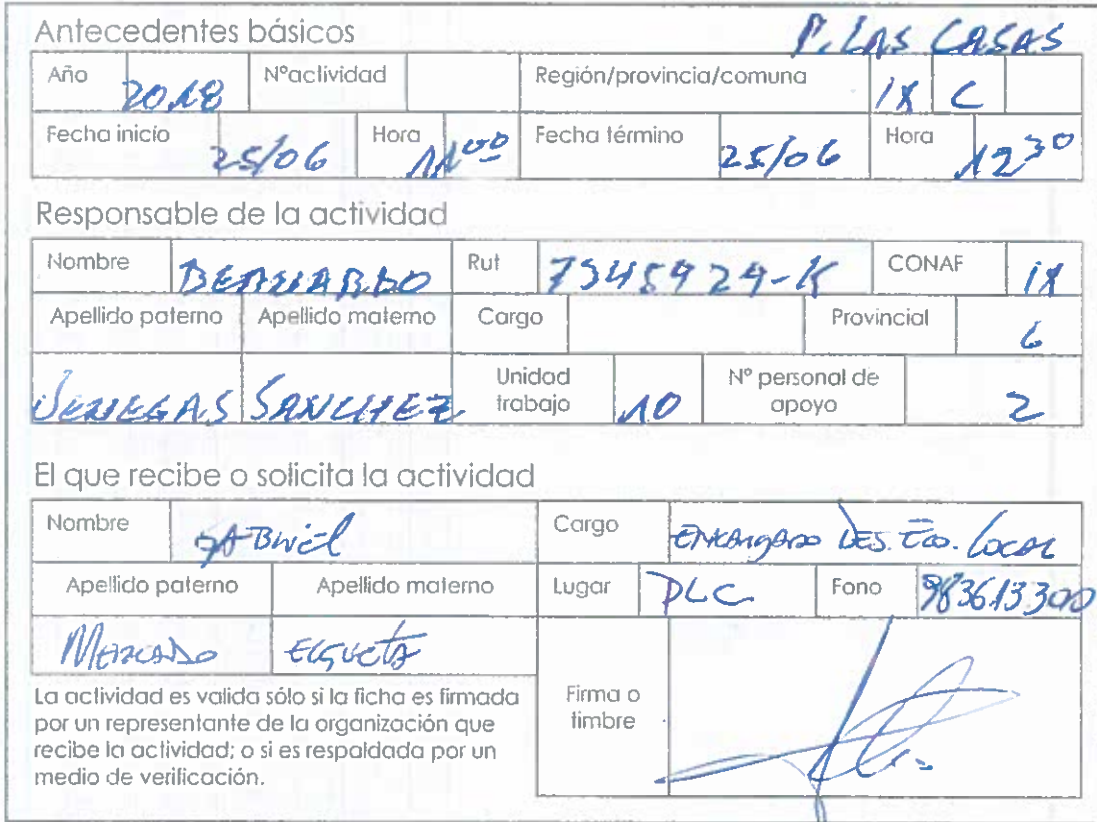 Antecedentes básicos P. LAS CASAS
Año 2018 Nºactividad Región/provincia/comuna IX C
Fecha inicio 25/06 Hora 11⁰⁰ Fecha término 25/06 Hora 12³⁰
Responsable de la actividad
Nombre BERNARDO Rut 7345929-K CONAF IX
Apellido paterno Apellido materno Cargo Provincial 6
VENEGAS SANCHEZ Unidad trabajo 10 Nº personal de apoyo 2
El que recibe o solicita la actividad
Nombre Cargo ENCARGADO DES. ECO. LOCAL
Apellido paterno Apellido materno Lugar PLC Fono 983613300
MERCADO ELGUETA
La actividad es valida sólo si la ficha es firmada
por un representante de la organización que
recibe la actividad; o si es respaldada por un
medio de verificación.
Firma o
timbre